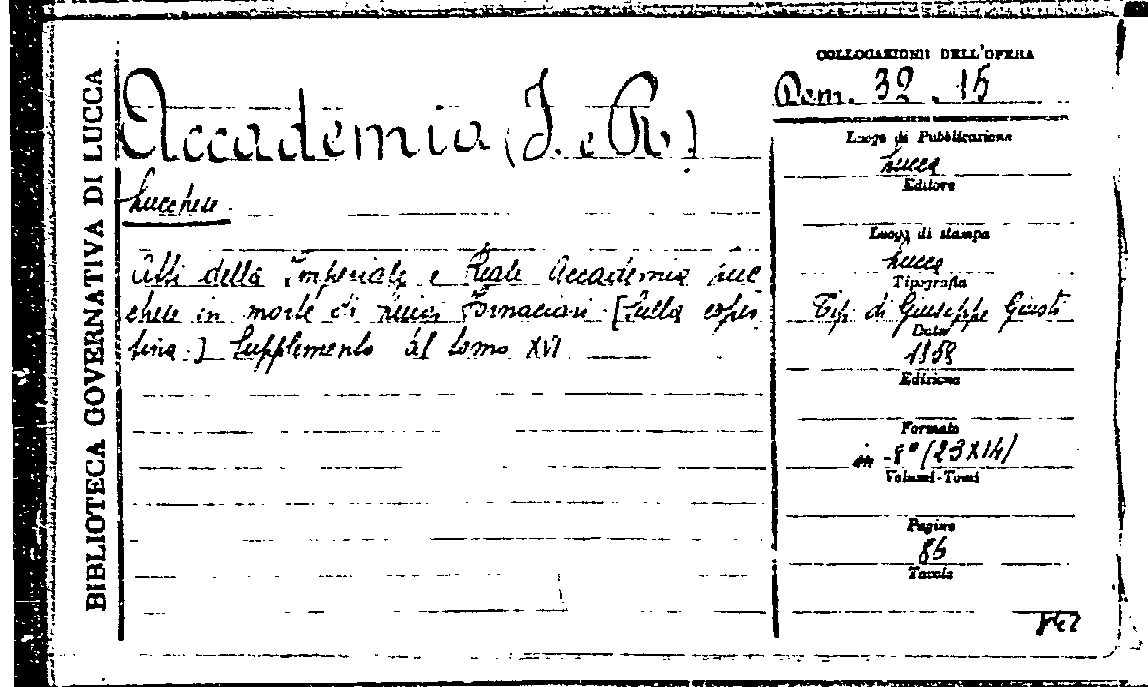 BIBLIOTECA GOVERNATIVA DI LUCCA
Accademia (I. e R.)
Lucchese.
Atti della Imperiale e Reale Accademia luc
chese in morte di Fornaciari. [Sulla coper
tina:] Supplemento al tomo XVI
COLLOCAZIONE DELL'OPERA
32. 15
Luogo di Pubblicazione
Lucca
Editore
Luogo di stampa
Lucca
Tipografia
Tip. di Giuseppe Giusti
Data
1858
Edizione
Formato
in-8° (23x14)
Volumi-Tomi
Pagine
Tavole